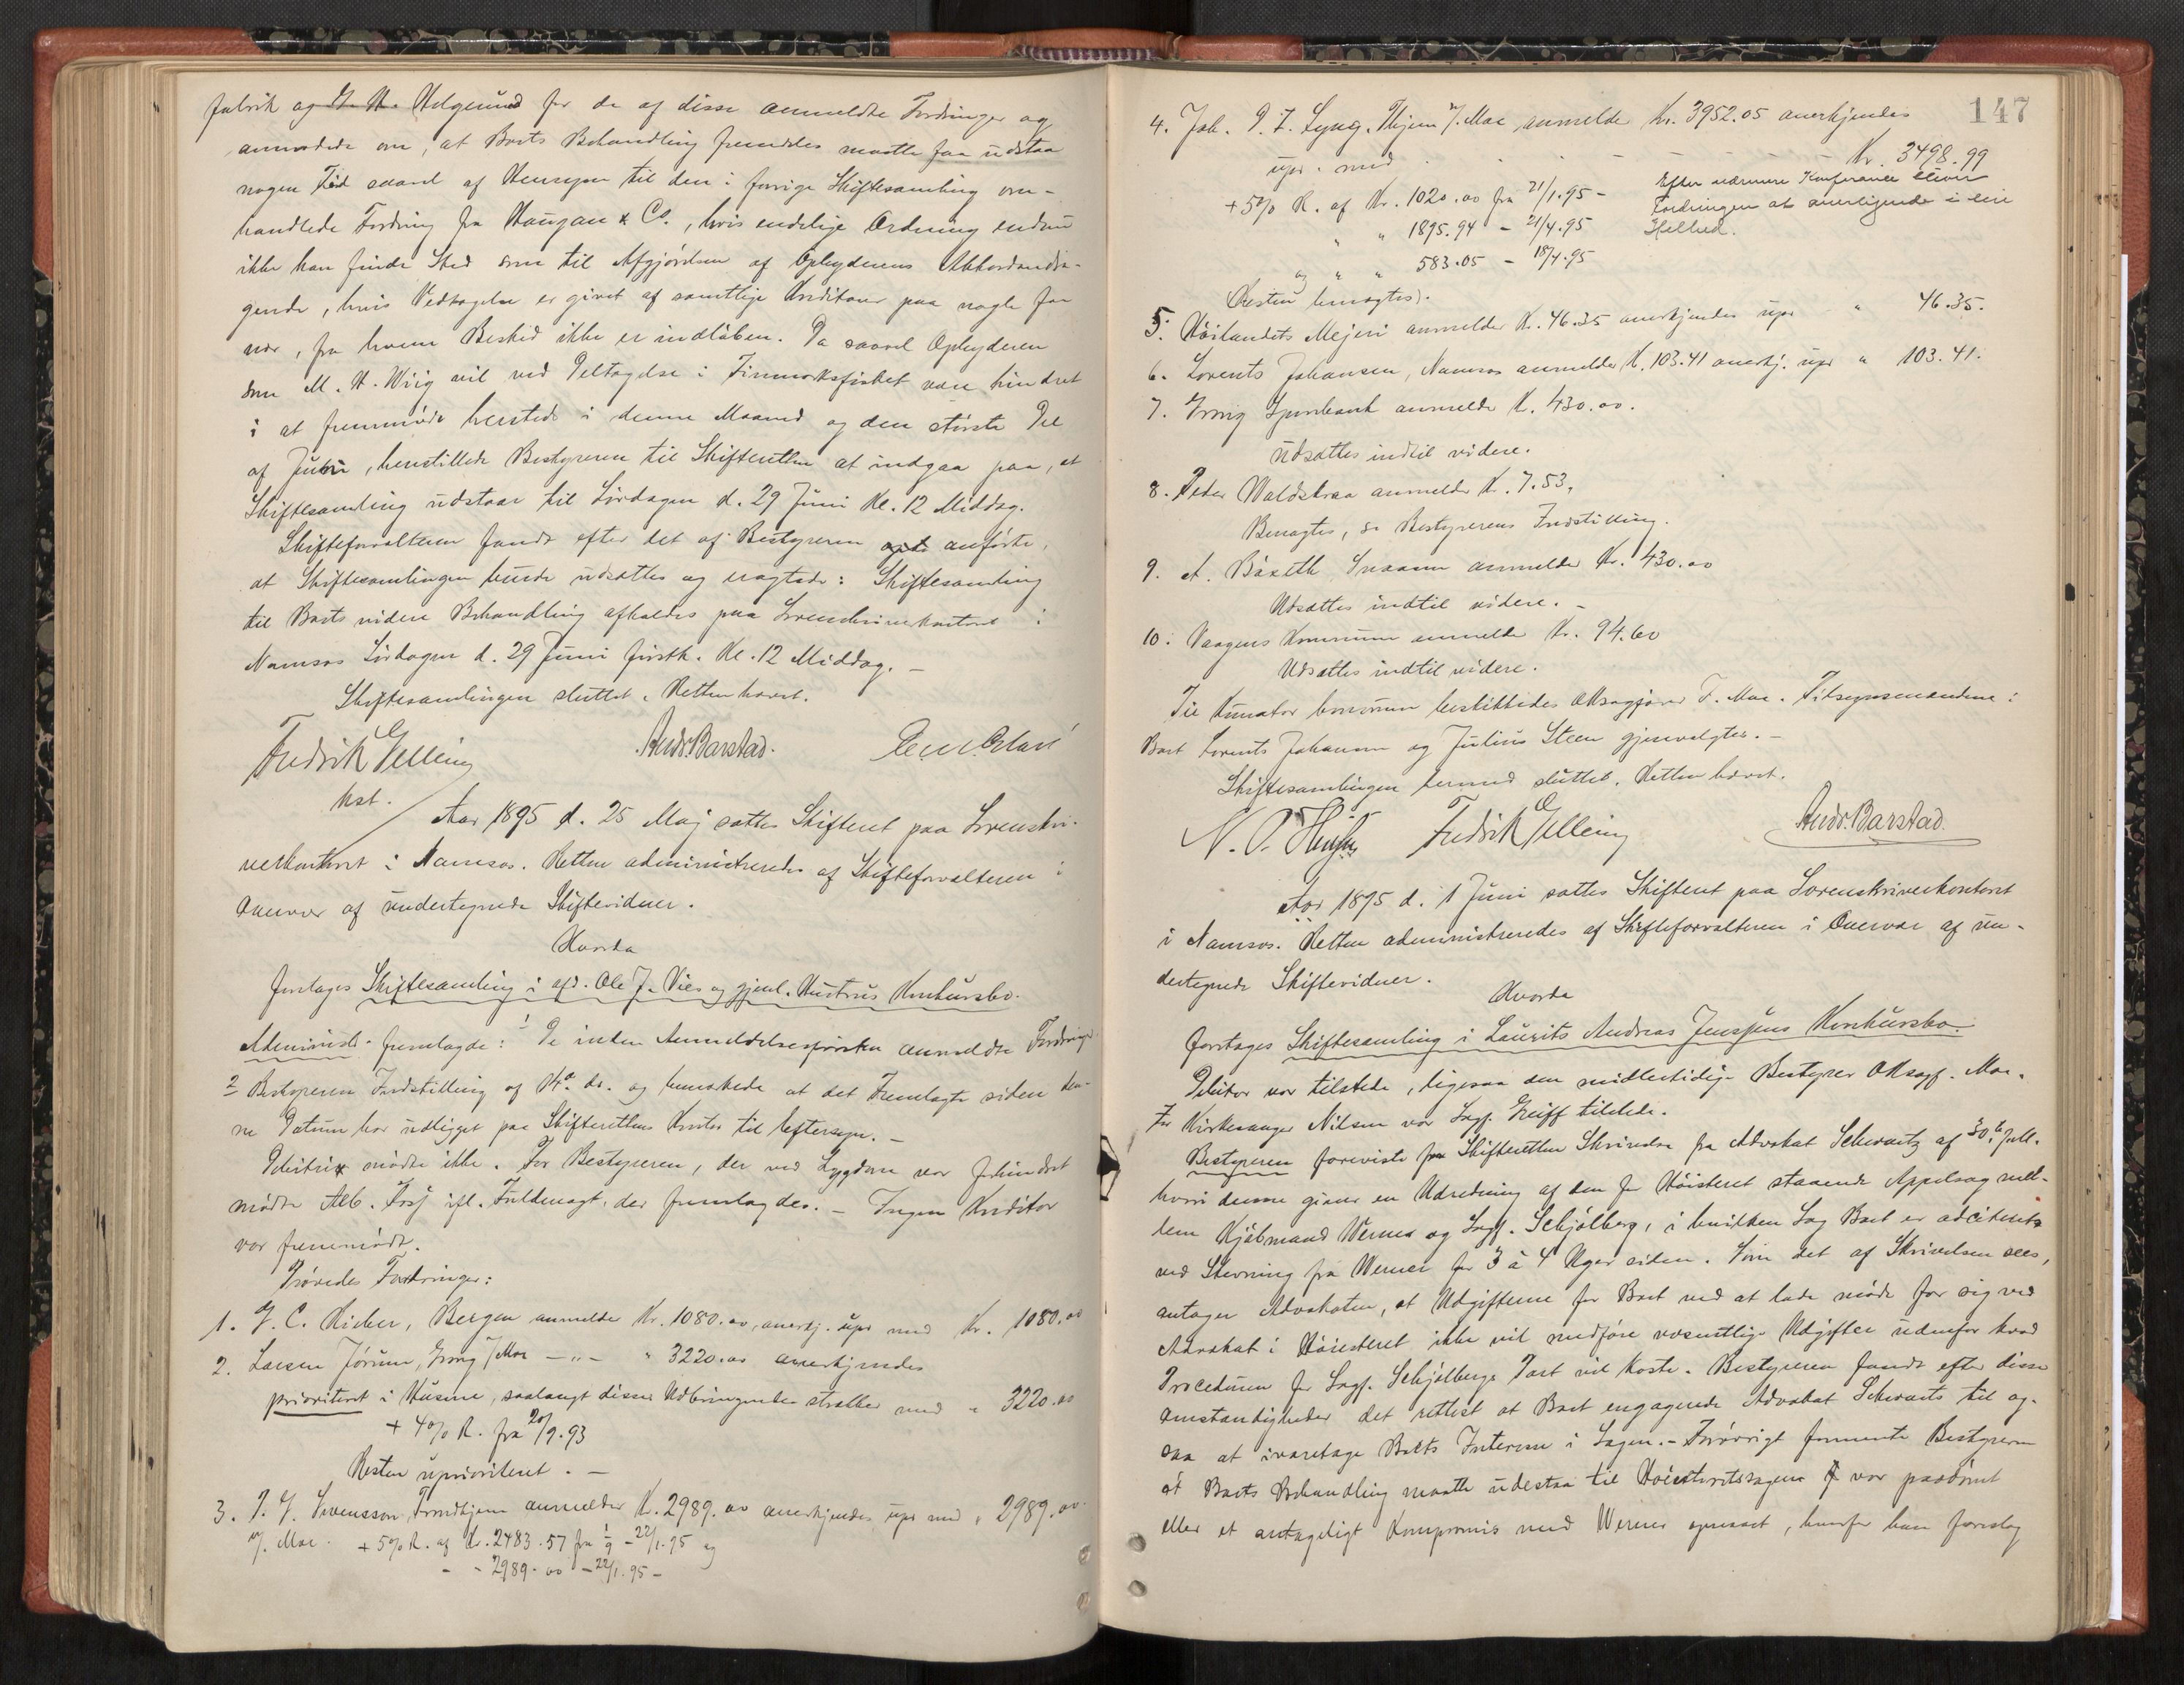 fabrik og G. A. Helgerud for de af disse anmeldte Fordringer og
anmodede om, at Boets Behandling fremdeles maatte faa udstaa
nogen Tid saavel af Hensyn til den i forrige Skiftesamling om-
handlede Fordring fra Haugan & Co., hvis endelige Ordning endnu
ikke kan finde Sted som til Afgjörelsen af Opbyderens Akkordandra-
gende, hvis Vedtagelse er givet af samtlige Kreditorer paa nogle faa
nær, fra hvem Beskid ikke er indlöben. Da saavel Opbyderen
som M. A. Wiig vil ved Deltagelse i Finmarksfisket være hindret
i at fremmöde herstede i denne Maaned og den störste Del
af Juni, henstillede Bestyreren til Skifteretten at indgaa paa, at
Skiftesamling udstaar til Lördagen d. 29 Juni Kl. 12 Middag.
Skifteforvalteren fandt efter det af Bestyreren anförte,
at Skiftesamlingen burde udsættes og eragtede: Skiftesamling
til Boets videre Behandling afholdes paa Sorenskriverkontoret i
Namsos Lördagen d. 29 Juni förstk. Kl. 12 Middag. –
Skiftesamlingen sluttet. Retten hævet.
Fredrik Gelling Andr. Barstad.
kst.
Aar 1895 d. 25 Maj sattes Skifteret paa Sorenskri-
verkontoret i Namsos. Retten administreredes af Skifteforvalteren i
Overvær af undertegnede Skiftevidner.
Hvorda
foretages Skiftesamling i afd. Ole J. Vies og gjenl. Hustrus Konkursbo.
Administr. fremlagde: 1 De inden Anmeldelsesfristen anmeldte Fordringer
2 Bestyreren Indstilling af ds. og bemærkede at det Fremlagte siden den-
ne Datum har udligget paa Skifterettens Kontor til Eftersyn. –
Debitrix mödte ikke. For Bestyreren, der ved Sygdom var forhindret
mödte Alb. ifl. Fuldmagt, der fremlagdes. – Ingen Kreditor
var fremmödt.
Prövedes Fordringer:
1. G. C. Rieber, Bergen anmelder Kr. 1080.00, anerkj. upr med Kr. 1080.00
2. Larsen Jörum, Grong / Moe – " – " 3220.00 anerkjendes
prioriteret i Husene, saalangt disses Udbringende strækker med " 3220.00
+ 4% R. fra 20/9.93
Resten uprioriteret. –
3. P. G. Svensson, Trondhjem anmelder Kr. 2989.00 anerkjendes upr med " 2989.00
v/ Moe. + 5% R. af Kr. 2483.57 fra 1/9 – 22/1.95 og
– – 2989.00 – 22/1.95 –
147
4. Joh. P. F. Lyng, Thjem v/ Moe anmelder Kr. 3952.05 anerkjendes
upr. med – – – – Kr. 3498.99
+ 5% R. af Kr. 1020.00 fra 21/1.95 –
" " 1895.94 – 21/4.95
og " " 583.05 – 18/4.95
(Resten benægtes).
Efter nærmere Konferance bliver
Fordringen at anerkjende i sin
Helhed.
5. Höilandets Mejeri anmelder Kr. 46.35 anerkjendes upr " 46.35.
6. Lorents Johansen, Namsos anmelder K. 103.41 anerkj. upr " 103.41.
7. Grong Sparebank anmelder K. 430.00.
Udsættes indtil videre.
8. Peder Waldstraa anmelder K. 7.53,
Benægtes, se Bestyrerens Indstilling.
9. A. Snaasen anmelder Kr. 430.00
Udsættes indtil videre. –
10. Vaagens Kommune anmelder Kr. 94.60
Udsættes indtil videre.
Til Kurator bonorum beskikkedes OKsagförer F. Moe. Tilsynsmændene:
Boet Lorents Johansen og Julius Steen gjenvalgtes. –
Skiftesamlingen hermed sluttet. Retten hævet.
Fredrik Gelling Andr. Barstad.
Aar 1895 d. 1 Juni sattes Skifteret paa Sorenskriverkontoret
i Namsos. Retten administreredes af Skifteforvalteren i Overvær af un-
dertegnede Skiftevidner.
Hvorda
foretages Skiftesamling i Laurits Andreas Jenssens Konkursbo.
Debitor var tilstede, ligesaa den midlertidige Bestyrer OKsagf. Moe.
For Kirkesanger Nilsen var Sagf. Greiff tilstede.
Bestyreren foreviste for Skifteretten Skrivelse fra Advokat Schwartz af 30te f. M.
hvori denne giver en Udredning af den for Höiesteret staaende Appelsag mel-
lem Kjöbmand Werner og Sagf. Schjölberg, i hvilken Sag Boet er adciteret
ved Stevning fra Werner for 3 à 4 Uger siden. Som det af Skrivelsen sees,
antager Advokaten, at Udgifterne for Boet ved at lade möde for sig ved
Advokat i Höiesteret ikke vil medföre væsentlige Udgifter udenfor hvad
Proceduren for Sagf. Schjölbergs Part vil koste. Bestyreren fandt efter disse
Omstændigheder det rettest at Boet engagerede Advokat Schwartz til og-
saa at ivaretage Boets Interesse i Sagen. – Forövrigt formente Bestyreren
at Boets Behandling maatte udestaa til Höiesteretssagen var paadömt
eller et antageligt Kompromis med Werner opnaaet, hvorfor han foreslog